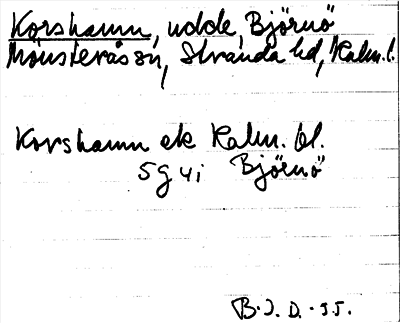 Korshamn, udde, Björnö
Mönsterås sn, Stranda hd, Kalm. l.
Korshamn ek Kalm. bl.
5g4i Björnö
B.J.D. -55.